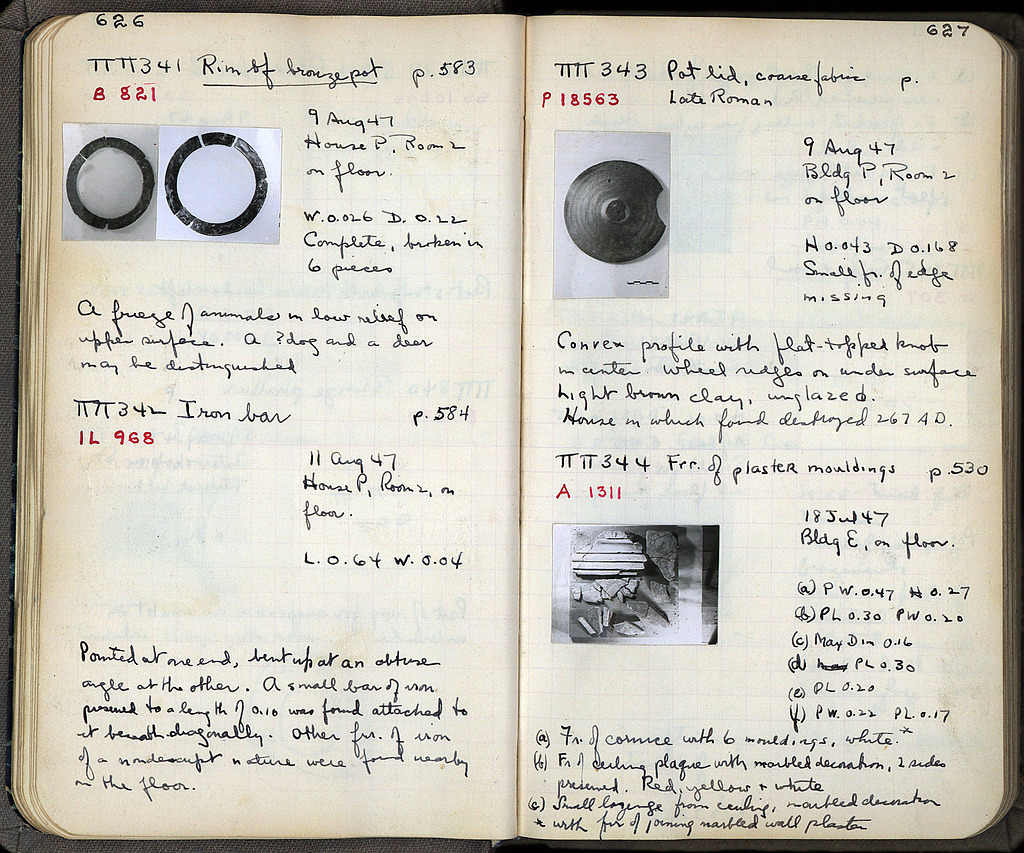 626
ΠΠ341 Rim of bronze pot p. 583
B 821
9 Aug 47
House P, Room 2
on floor.
W. 0.026 D. 0.22
Complete, broken in
6 pieces
A frieze of animals in low relief on
upper surface. A ?dog and a deer
may be distinguished
ΠΠ342 Iron bar p. 584
IL 968
11 Aug 47
House P, Room 2, on
floor.
L. 0.64 W. 0.04
Pointed at one end, bent up at an obtuse
angle at the other. A small bar of iron
preserved to a length of 0.10 was found attached to
it beneath diagonally. Other frr. of iron
of a nondescript nature were found nearby
on the floor.
627
ΠΠ 343 Pot lid, coarse fabric p.
P 18563 Late Roman
9 Aug 47
Bldg P, Room 2
on floor
H 0.043 D 0.168
Small fr. of edge
missing
Convex profile with flat-topped knob
in center. Wheel ridges on under surface
Light brown clay, unglazed.
House in which found destroyed 267 AD.
ΠΠ344 Frr. of plaster mouldings p. 530
A 1311
18 Jul 47
Bldg E, on floor.
(a) PW. 0.47 H 0.27
(b) PL 0.30 PW 0.20
(c) Max Dim 0.16
(d) PL 0.30
(e) PL 0.20
(f) PW. 0.22 PL. 0.17
(a) Fr. of cornice with 6 mouldings, white.*
(b) Fr. of ceiling plaque with marbled decoration, 2 sides
preserved. Red, yellow + white
(c) Small lozenge from ceiling, marbled decoration
* with frr of joining marbled wall plaster